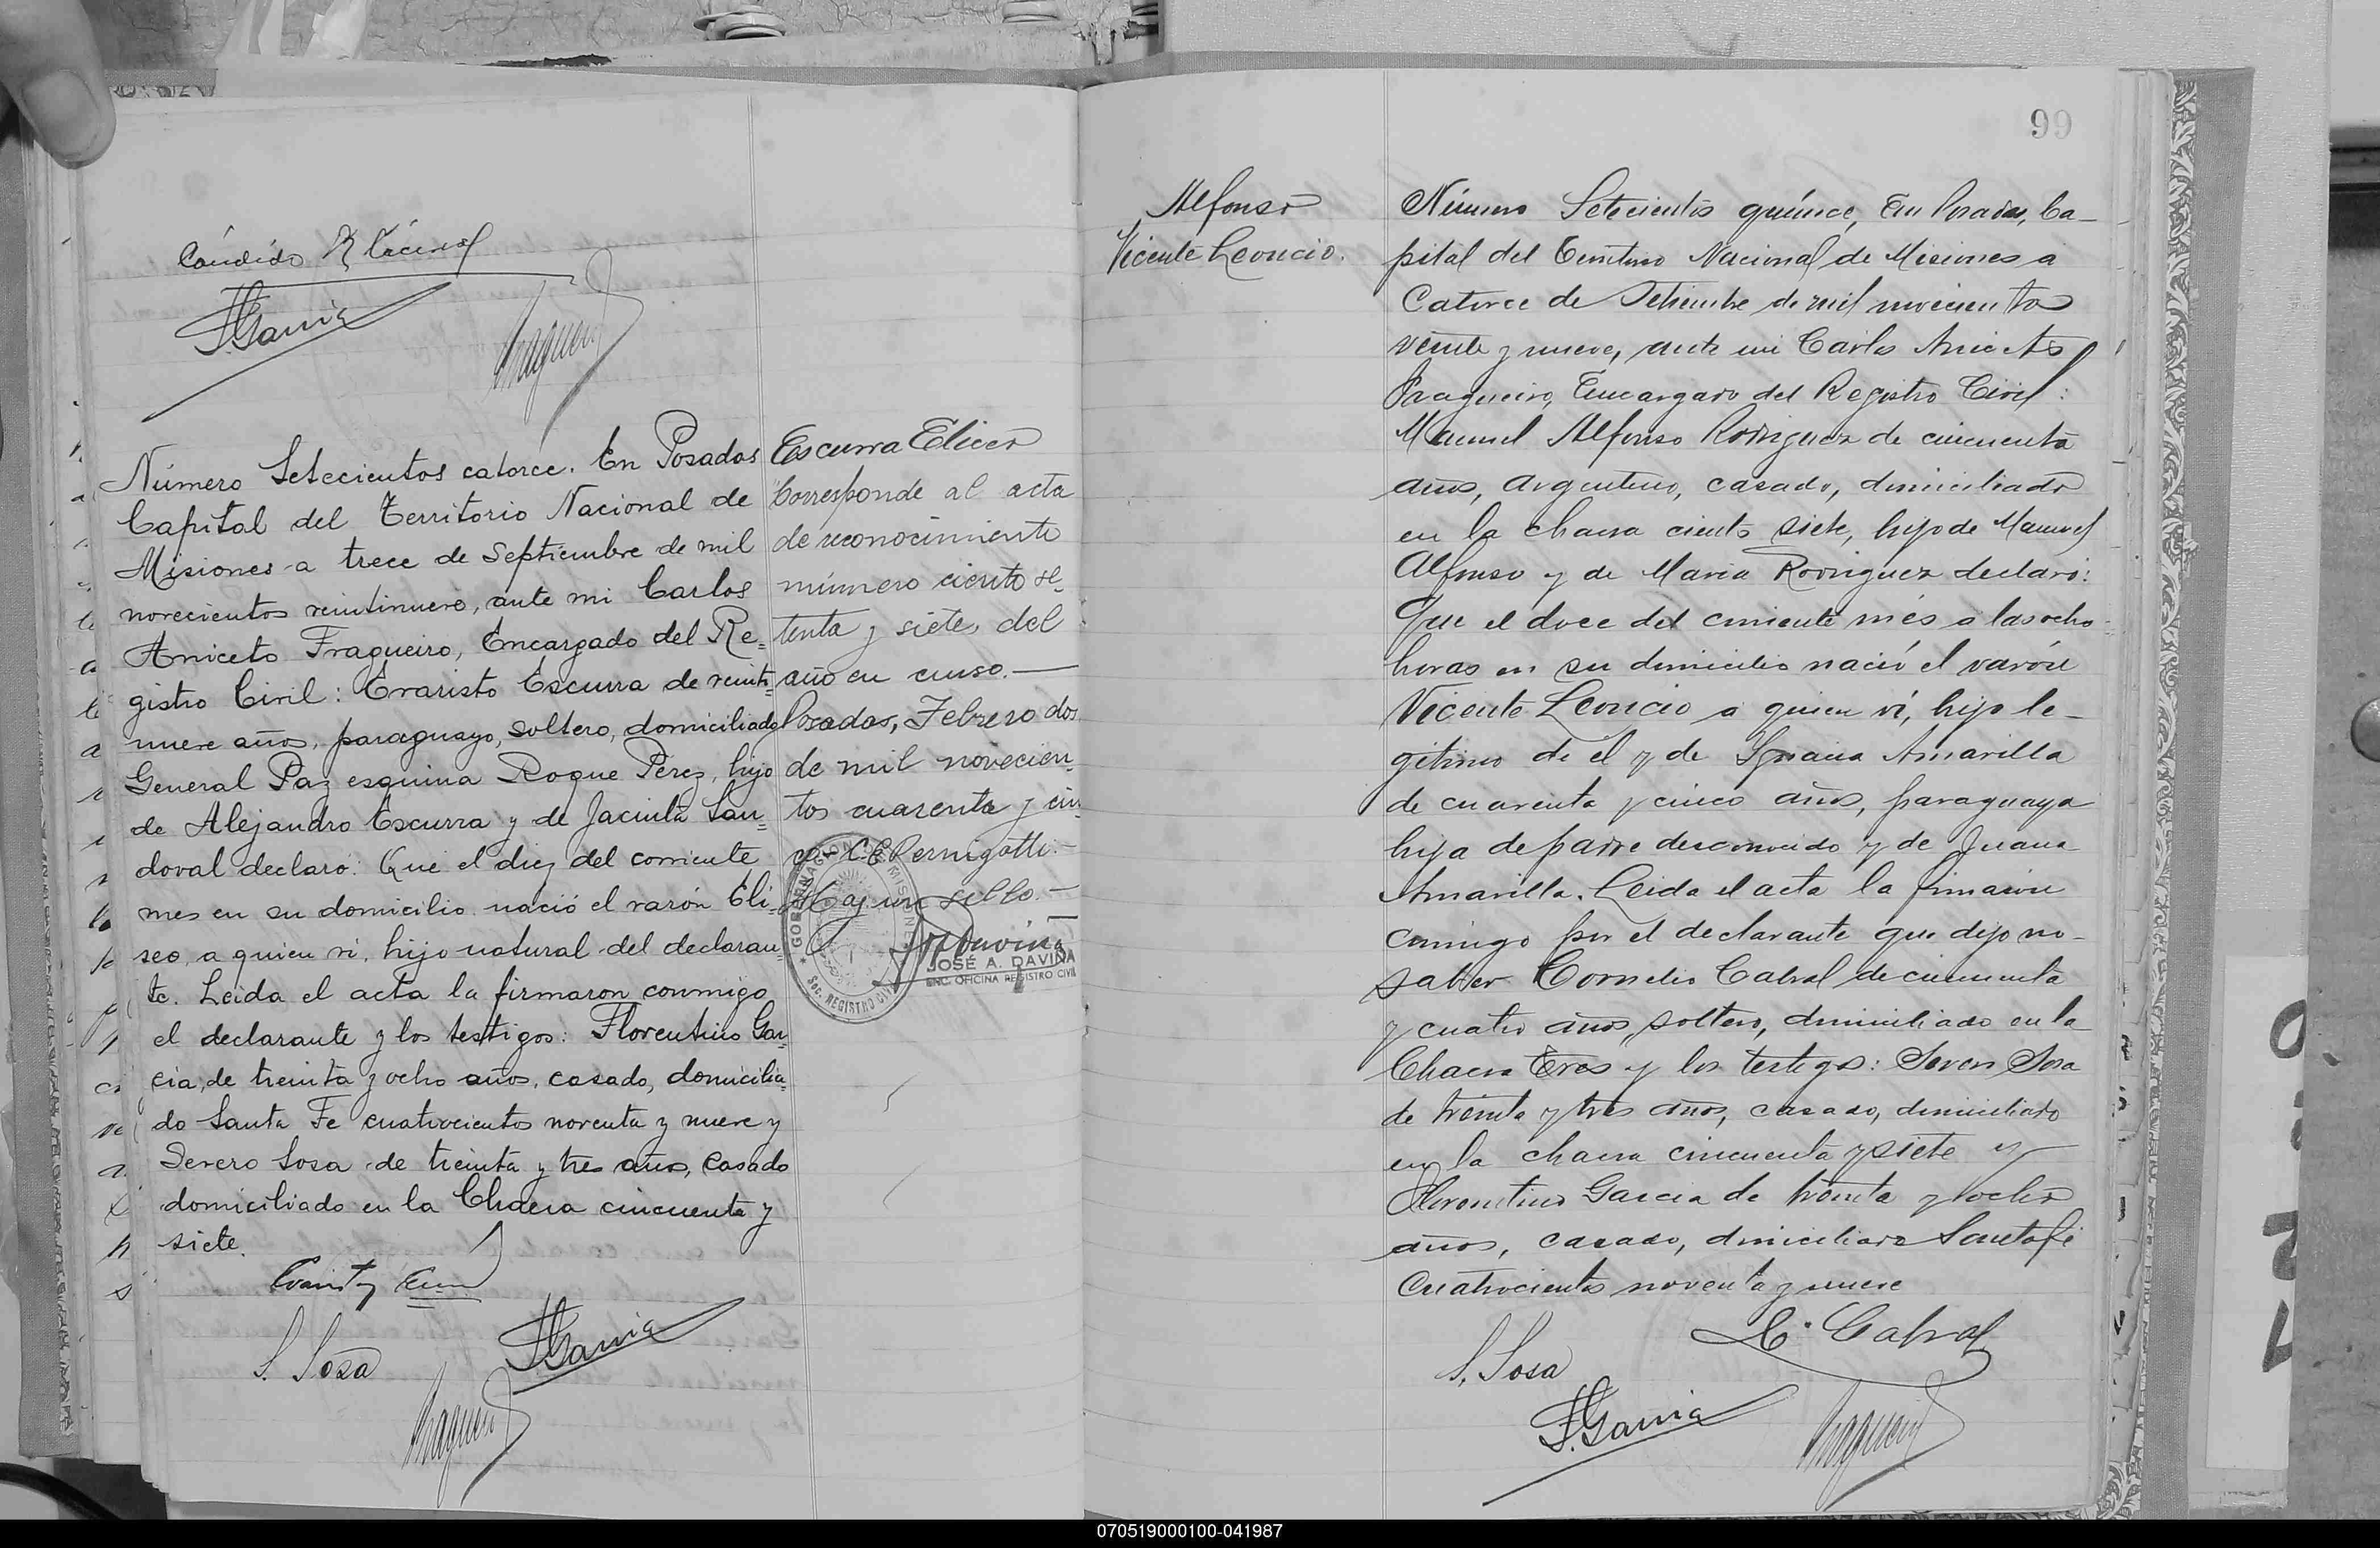 Cándido R
F. Garcia
Fragueiro
Número Setecientos catorce. En Posadas
Capital del Territorio Nacional de
Misiones a trece de Septiembre de mil
novecientos veintinueve, ante mi Carlos
Aniceto Fragueiro, Encargado del Re=
gistro Civil: Evaristo Escurra de veinti=
nueve años, paraguayo, soltero, domiciliado
General Paz esquina Roque Perez, hijo
de Alejandro Escurra y de Jacinta San=
doval declaró: Que el diez del corriente
mes en su domicilio nació el varón Eli=
seo, a quien vi, hijo natural del declaran=
te. Leida el acta la firmaron conmigo
el declarante y los testigos: Florentino Gar=
cia, de treinta y ocho años, casado, domicilia=
do Santa Fe cuatrocientos noventa y nueve y
Severo Sosa de treinta y tres años, casado
domiciliado en la Chacra cincuenta y
siete.
S. Sosa
F. Garcia
Fragueiro
Escurra Eliceo
Corresponde al acta
de reconocimiento
número ciento se=
tenta y siete, del
año en curso.—
Posadas, Febrero dos
de mil novecien=
tos cuarenta y cin
co- C. E. Pernigotti.-
Hay un sello.—
GOBERNACION MISIONES
SOC. REGISTRO CIVIL
JOSÉ A. DAVIÑA
ENC. OFICINA REGISTRO CIVIL
99
Alfonso
Vicente Leoncio.
Número Setecientos quince, En Posadas, Ca-
pital del Territorio Nacional de Misiones a
Catorce de Setiembre de mil novecientos
veinte y nueve, ante mi Carlos Aniceto
Fragueiro, Encargado del Registro Civil:
Manuel Alfonso Rodriguez de cincuenta
años, argentino, casado, domiciliado
en la chacra ciento siete, hijo de Manuel
Alfonso y de Maria Rodriguez declaró:
Que el doce del corriente més a las ocho
horas en su domicilio nació el varón
Vicente Leoncio a quien ví, hijo le-
gitimo de el y de Ignacia Amarilla
de cuarenta y cinco años, paraguaya
hija de padre desconocido y de Juana
Amarilla. Leida el acta la firmaron
conmigo por el declarante que dijo no-
saber Cornelio Cabral de cincuenta
y cuatro años, soltero, domiciliado en la
Chacra Tres y los testigos: Severo Sosa
de treinta y tres años, casado, domiciliado
en la chacra cincuenta y siete y
Florentino Garcia de treinta y ocho
años, casado, domiciliado Santa fé
Cuatrocientos noventa y nueve
C. Cabral
S. Sosa
F. Garcia
Fragueiro
070519000100-041987